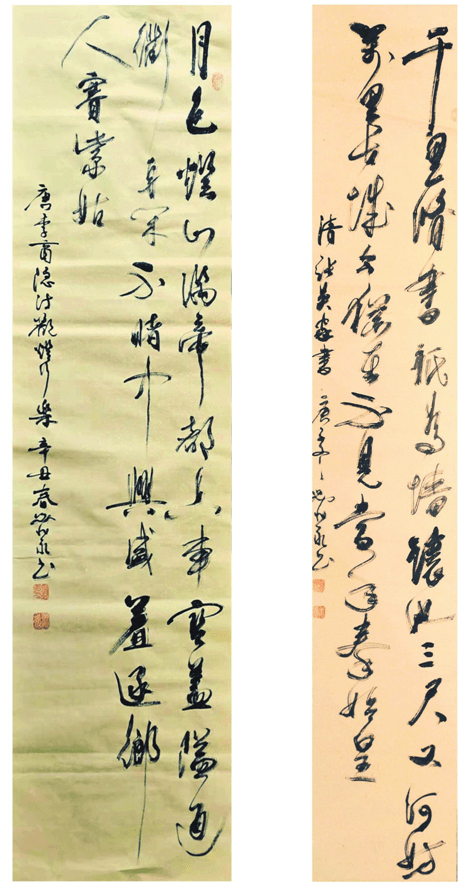 千里脩書祇為墻讓他三尺又何妨
萬里长城今猶在不見當年秦始皇
清張英家書
庚子
月色燈山滿帝都香車寶蓋隘通
衢身閑不睹中興盛羞逐鄉
人賽紫姑
唐李商隱詩觀燈行樂辛丑春